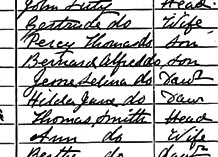 John Tutty Head
Gertrude do Wife
Percy Thomas do Son
Bernard Alfred do Son
Jessie Selina do Daur
Hilda Jane do Daur
Thomas Smith Head
Ann do Wife
Bertha do daur